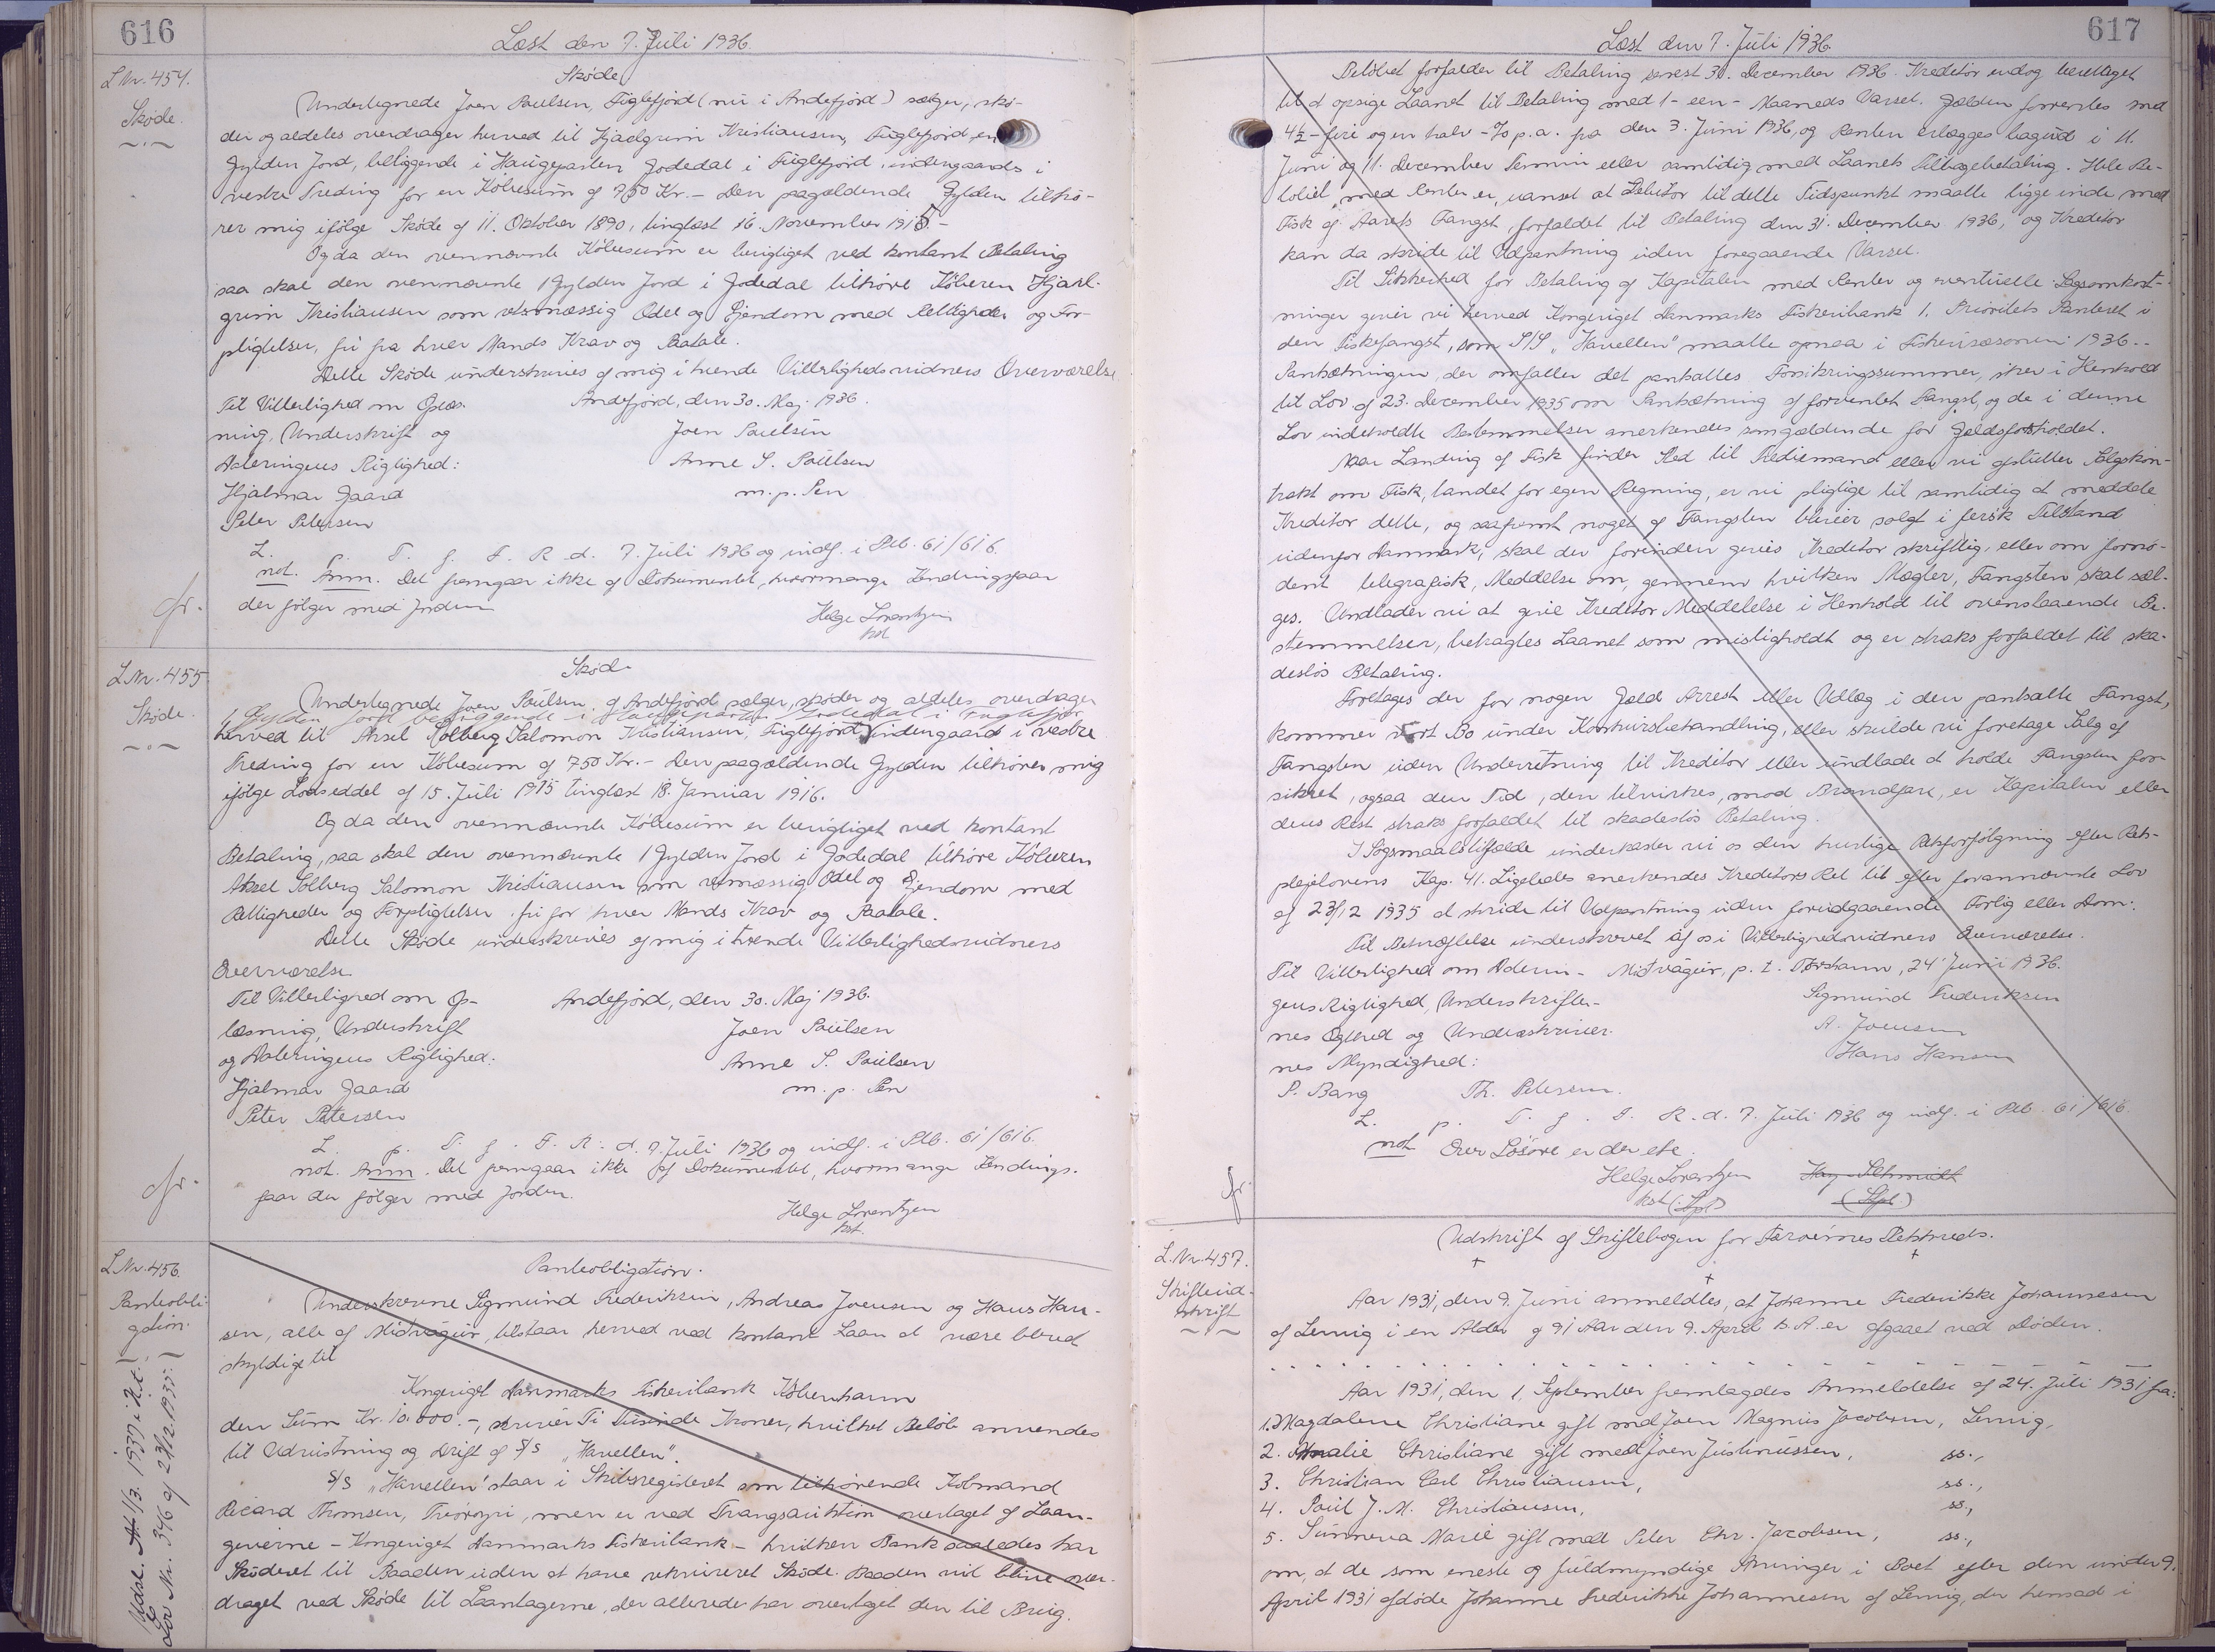 616
Læst den 7. Juli 1936.
L.Nr. 454.
Skøde.
Skøde
Undertegnede Joen Poulsen, Fuglefjord (nu i Andefjord) sælger, skø-
der og aldeles overdrager herved til Hjadgrim Kristiansen, Fuglefjord, en
Gylden Jord, beliggende i Haugeparten Jodedal i Fuglefjord, undergaards i
vestre Treding for en Købesum af 750 Kr. - Den paagældende Gylden tilhø-
rer mig ifølge Skøde af 11. Oktober 1890, tinglæst 16. November 1915.-
Og da den ovennævnte Købesum er berigtiget ved kontant Betaling
saa skal den ovennævnte 1 Gylden Jord i Jodedal tilhøre Køberen Hjadl-
grim Kristiansen som retsmæssig Odel og Ejendom med Rettigheder og For-
pligtelser, fri fra hver Mands Krav og Paatale.
Dette Skøde underskrives af mig i tvende Vitterlighedsvidners Overværelse
Til Vitterlighed om Oplæs-
Andefjord, den 30. Maj 1936.
ning, Underskrift og
Joen Poulsen
Dateringens Rigtighed:
Anne S. Poulsen
Hjalmar Gaard
m. p. Pen
Peter Petersen
L. p. T. f. F. R. d. 7. Juli 1936 og indf. i Ptb. 61/616.
not. Anm. Det fremgaar ikke af Dokumentet, hvormange Hendingsfaar
der følger med Jorden
Helge Lorentzen
kst
L.Nr. 455
Skøde.
Skøde
Undertegnede Joen Poulsen af Andefjord sælger, skøder og aldeles overdrager
1 Gylden Jord beliggende i Haugeparten Jodedal i Fuglefjor
herved til Aksel Solberg Salomon Kristiansen, Fuglefjord, undergaards i vestre
Treding for en Købesum af 750 Kr. - Den paagældende Gylden tilhører mig
ifølge Lodseddel af 15. Juli 1915 tinglæst 18. Januar 1916.
Og da den ovennævnte Købesum er berigtiget ved kontant
Betaling, saa skal den ovennævnte 1 Gylden Jord i Jodedal tilhøre Køberen
Aksel Solberg Salomon Kristiansen som retsmæssig Odel og Ejendom med
Rettigheder og Forpligtelser fri for hver Mands Krav og Paatale.
Dette Skøde underskrives af mig i tvende Vitterlighedsvidners
Overværelse
Til Vitterlighed om Op-
Andefjord, den 30. Maj 1936.
læsning, Underskrift
Joen Poulsen
og Dateringens Rigtighed:
Anne S. Poulsen
Hjalmar Gaard
m. p. Pen
Peter Petersen
L. p. T. f. F. R. d. 7. Juli 1936 og indf. i Ptb. 61/616.
not. Anm. Det fremgaar ikke af Dokumentet, hvormange Hendings-
faar der følger med Jorden.
Helge Lorentzen
kst.
L.Nr. 456.
Panteobli-
gation.
Lov Nr. 346 af 23/12 1935.
Panteobligation.
Underskrevne Sigmund Frederiksen, Andreas Joensen og Hans Han-
sen, alle af Midvágur, tilstaar herved ved kontant Laan at være blevet
skyldige til
Kongeriget Danmarks Fiskeribank København
den Sum Kr. 10.000.-, skriver Ti Tusinde Kroner, hvilket Beløb anvendes
til Udrustning og Drift af S/S "Havellen".
S/S "Havellen" staar i Skibsregisteret som tilhørende Købmand
Ricard Thomsen, Tvøroyri, men er ved Tvangsauktion overtaget af Laan-
giverne - Kongeriget Danmarks Fiskeribank - hvilken Bank saaledes har
Skøderet til Baaden uden at have rekvireret Skøde. Baaden vil blive over-
draget ved Skøde til Laantagerne, der allerede har overtaget den til Brug.
617
Læst den 7. Juli 1936.
Beløbet forfalder til Betaling senest 31. December 1936. Kreditor er dog berettiget
til at opsige Laanet til Betaling med 1 - een - Maaneds Varsel. Gælden forrentes med
4½ - fire og en halv - % p.a. fra den 3. Juni 1936, og Renten erlægges bagud i 11.
Juni og 11. December Termin eller samtidig med Laanets Tilbagebetaling. Hele Be-
løbet, med Renter er, uanset at Debitor til dette Tidspunkt maatte ligge inde med
Fisk af Aarets Fangst, forfaldet til Betaling den 31. December 1936, og Kreditor
kan da skride til Udpantning uden foregaaende Varsel.
Til Sikkerhed for Betaling af Kapitalen med Renter og eventuelle Sagsomkost-
ninger giver vi herved Kongeriget Danmarks Fiskeribank 1. Prioritets Panteret i
den Fiskefangst, som S/S "Havellen" maatte opnaa i Fiskerisæsonen 1936.-
Pantsætningen, der omfatter det pantsattes Forsikringssummer, sker i Henhold
til Lov af 23. December 1935 om Pantsætning af forventet Fangst, og de i denne
Lov indeholdte Bestemmelser anerkendes som gældende for Gældsforholdet.
Naar Landing af Fisk finder Sted til Trediemand eller vi afslutter Salgskon-
trakt om Fisk, landet for egen Regning, er vi pligtige til samtidig at meddele
Kreditor dette, og saafremt noget af Fangsten bliver solgt i fersk Tilstand
udenfor Danmark, skal der forinden gives Kreditor skriftlig, eller om fornø-
dent telegrafisk, Meddelse om, gennem hvilken Mægler, Fangsten skal sæl-
ges. Undlader vi at give Kreditor Meddelelse i Henhold til ovenstaaende Be-
stemmelser, betragtes Laanet som misligholdt og er straks forfaldet til ska-
desløs Betaling.
Foretages der for nogen Gæld Arrest eller Udlæg i den pantsatte Fangst,
kommer vort Bo under Konkursbehandling, eller skulde vi foretage Salg af
Fangsten uden Underretning til Kreditor eller undlade at holde Fangsten for-
sikret, ogsaa den Tid, den tilvirkes, mod Brandfare, er Kapitalen eller
dens Rest straks forfaldet til skadesløs Betaling.
I Søgsmaalstilfælde underkaster vi os den hurtige Retsforfølgning efter Rets-
plejelovens Kap. 41. Ligeledes anerkendes Kreditors Ret til efter forannævnte Lov
af 23/12 1935 at skride til Udpantning uden forudgaaende Forlig eller Dom.
Til Bekræftelse underskrevet af os i Vitterlighedsvidners Overværelse.
Til Vitterlighed om Daterin-
Midvágur, p. t. Tórshavn, 24' Juni 1936.
gens Rigtighed, Underskrifter-
Sigmund Frederiksen
nes Ægthed og Underskriver-
A. Joensen
nes Myndighed:
Hans Hansen
P. Bang
Th. Petersen.
L. p. T. f. F. R. d. 7. Juli 1936 og indf. i Ptb. 61/616.
not Over Løsøre er der ete.
Helge Lorentzen
kst
L.Nr. 457.
Skifteud-
skrift
Udskrift af Skiftebogen for Færøernes Retskreds.
Aar 1931, den 9. Juni anmeldtes, at Johanne Frederikke Johannesen
af Lervig i en Alder af 91 Aar den 9. April d. A. er afgaaet ved Døden.
Aar 1931, den 1. September fremlagdes Anmeldelse af 24. Juli 1931 fra:
1. Magdalene Christiane gift med Joen Magnus Jacobsen, Lervig,
2. Amalie Christiane gift med Joen Justinussen, ss.,
3. Christian Carl Christiansen, ss.,
4. Poul J. M. Christiansen, ss.,
5. Sunneva Marie gift med Peter Chr. Jacobsen, ss.,
om, at de som eneste og fuldmyndige Arvinger i Boet efter den under 9.
April 1931 afdøde Johanne Frederikke Johannesen af Lervig, der hensad i